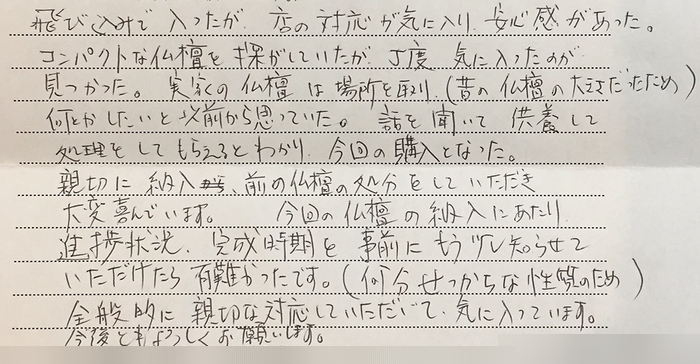 飛び込みで入ったが、店の対応が気に入り、安心感があった。
コンパクトな仏壇を探がしていたが、丁度気に入ったのが
見つかった。実家の仏壇は場所を取り、(昔の仏壇の大きさだったため)
何とかしたいと以前から思っていた。話を聞いて供養して
処理をしてもらえるとわかり、今回の購入となった。
親切に納入、前の仏壇の処分をしていただき
大変喜んでいます。今回の仏壇の納入にあたり、
進捗状況、完成時期を事前にもう少し知らせて
いただけたら有難かったです。(何分せっからな性質のため)
全般的に親切な対応していただいて、気に入っています。
今後ともよろしくお願いします。